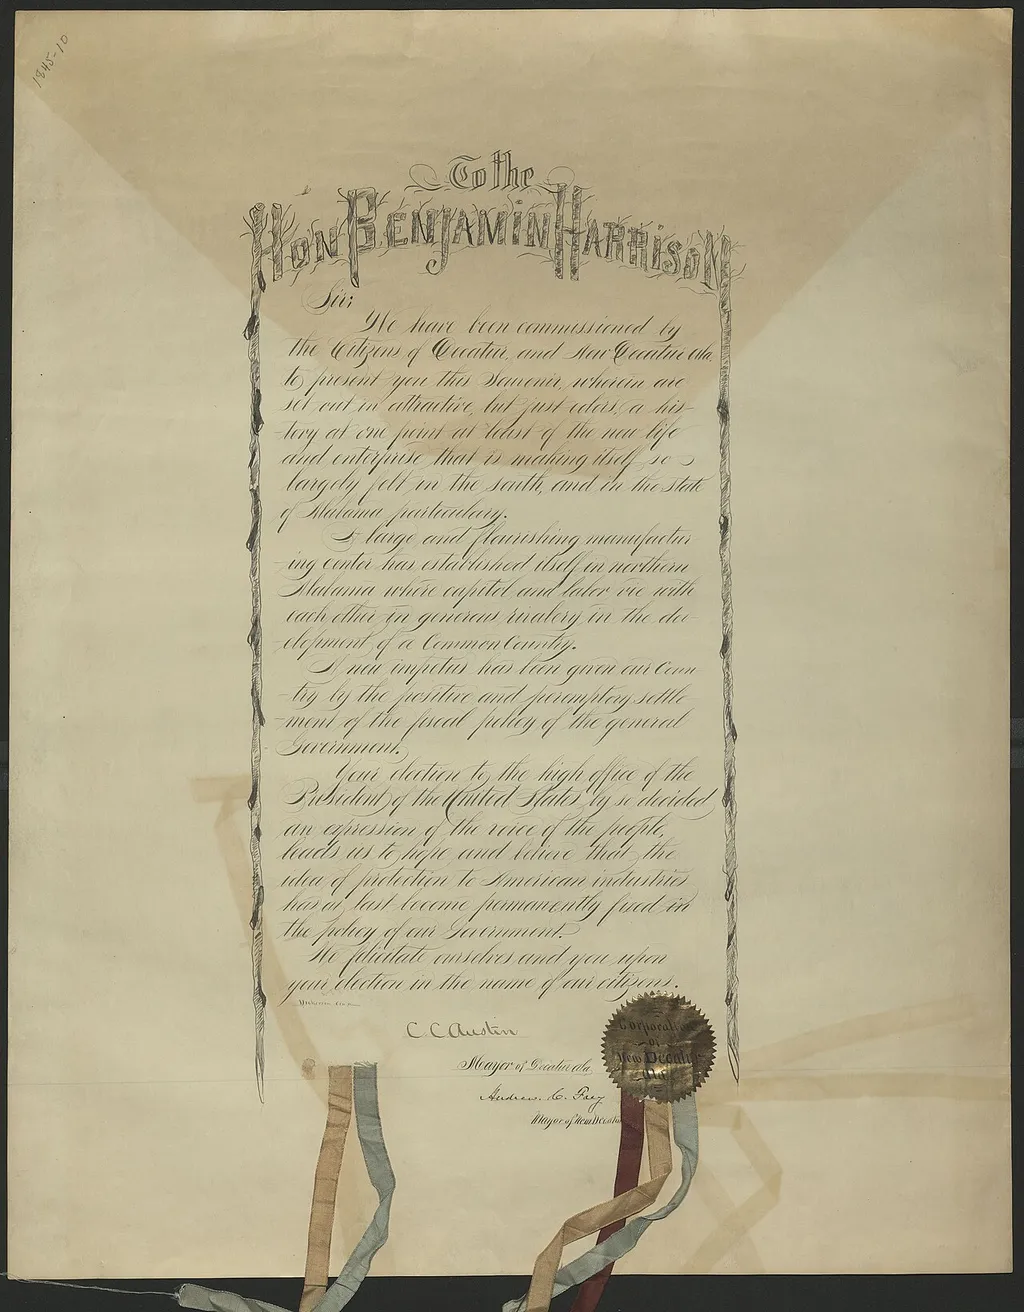 1845-10
To the
Hon Benjamin Harrison
Sir;
We have been commissioned by
the Citizens of Decatur, and New Decatur Ala.
to present you this Souvenir, wherein are
set out in attractive, but just colors, a his-
tory at one point at least of the new life
and enterprise that is making itself so
largely felt in the south, and in the state
of Alabama particulary.
A large and flourishing manufactur
-ing center has established itself in northern
Alabama where capitol and labor vie with
each other in generous rivalery in the dev-
-elopment of a Common Country.
A new impetus has been given our Coun
-try by the positive and peremptory settle
-ment of the fiscal policy of the general
Government.
Your election to the high office of the
President of the United States, by so decided
an expression of the voice of the people,
leads us to hope and believe that the
idea of protection to American industries
has at last become permanently fixed in
the policy of our Government.
We filicitate ourselves and you upon
your election in the name of our citizens.
C. C. Austin
Mayor of Decatur Ala.
Andrew C. Frey
Mayor of New Decatur
Corporation
of
New Decatur
Ala.